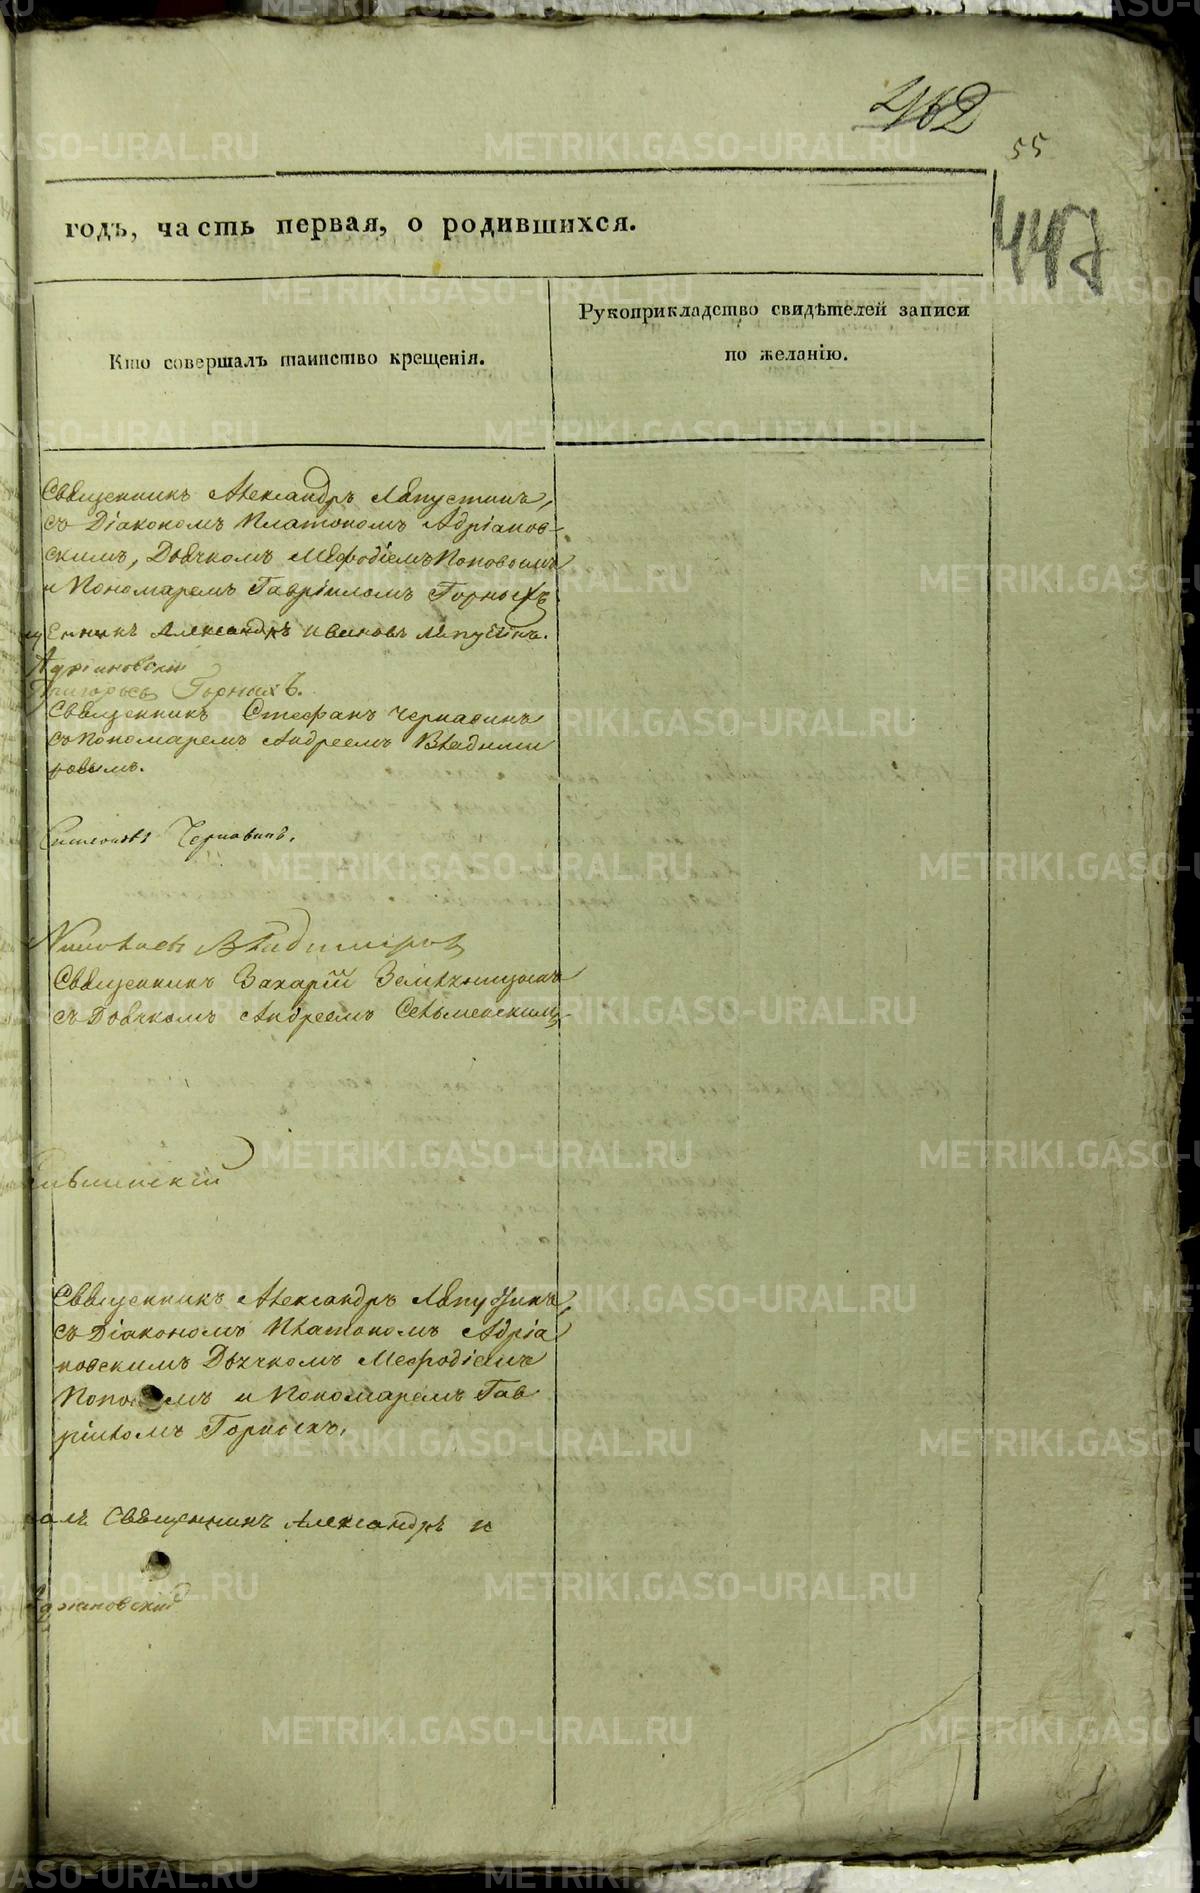 462
55
447
годъ, часть первая, о родившихся.
Кто совершалъ таинство крещенія.
Рукоприкладство свидѣтелей записи
по желанію.
Священникъ Александръ Лапустинъ,
съ Діакономъ Платономъ Адріанов-
скимъ, Дьячкомъ Меѳодіемъ Поповымъ
и Пономаремъ Гавріиломъ Горныхъ
Александръ Ивановъ Лапустинъ.
Адриановскій
Григорьевъ Горныхъ.
Священникъ Стефанъ Чернавинъ
съ Пономаремъ Андреемъ Владими
ровымъ.
Чернавинъ.
Николаевъ Владимировъ
Священникъ Захарій Земляницынъ
съ Дьячкомъ Андреемъ Сельменскимъ
Сельменскій
Священникъ Александръ Лапустинъ,
съ Діакономъ Платономъ Адріа
новскимъ Дьячкомъ Меѳодіемъ
Поповымъ и Пономаремъ Гав
ріиломъ Горныхъ.
Священникъ Александръ и
Адриановскій
METRIKI.GASO-URAL.RU